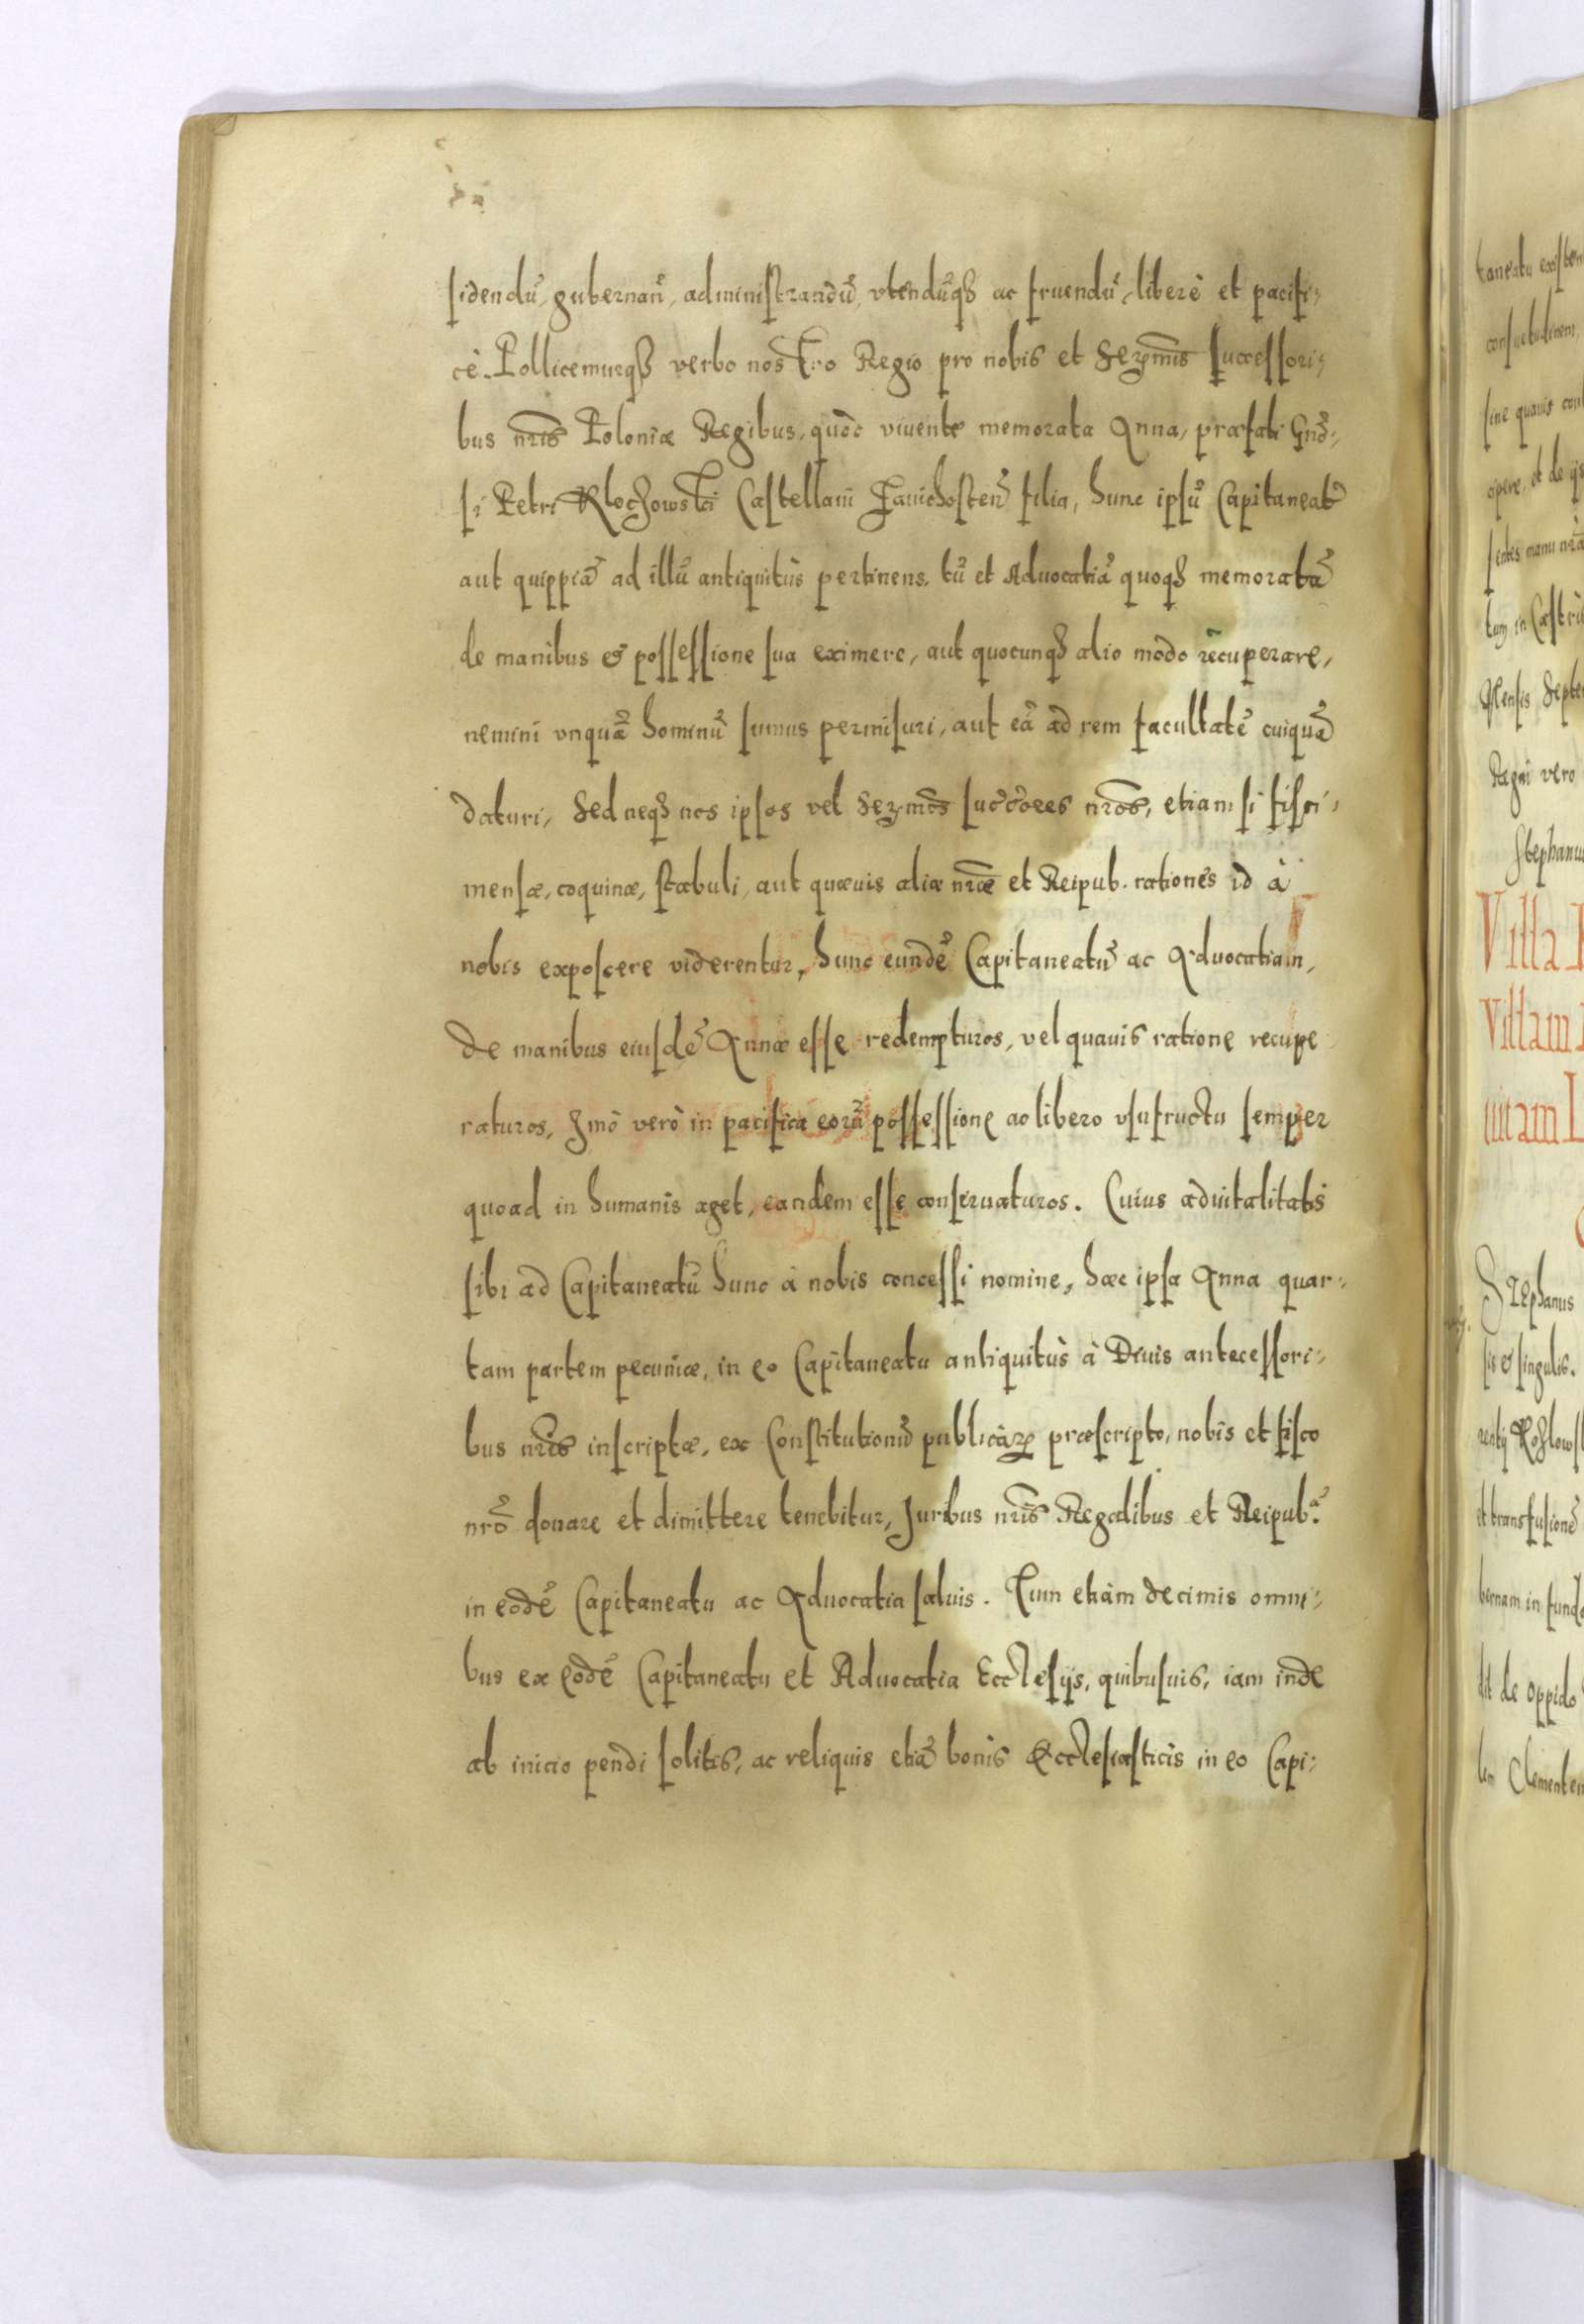 sidendũ, gubernañ, administrandũ, vtendũqȝ ac fruendũ, liberè et pacifi-
cè. Pollicemurqȝ verbo nostro Regio pro nobis et Serᵐⁱˢ successori-
bus nr̃is Poloniæ Regibus, quòd viuente memorata Anna, præfati Gño-
si Petri Klochowski Castellani Zauichosteñ filia, hunc ipsũ Capitaneatũ
aut quippiã ad illũ antiquitùs pertinens, tũ et Aduocatiã quoqȝ memoratã
de manibus et possessione sua eximere, aut quocunqȝ alio modo recuperare,
nemini vnquã hominũ sumus permisuri, aut eã ad rem facultatẽ cuiquã
daturi, Sed neqȝ nos ipsos vel Serᵐᵒˢ succ̃ores nr̃os, etiam si fisci,
mensæ, coquinæ, stabuli, aut quæuis aliæ nr̃æ et Reipub. rationes id à
nobis exposcere viderentur, hunc eundẽ Capitaneatũ ac Aduocatiam,
de manibus eiusdẽ Annæ esse redempturos, vel quauis ratione recupe
raturos, Imò verò in pacifica eorũ possessione ac libero vsufructu semper
quoad in humanis aget, eandem esse conseruaturos. Cuius aduitalitatis
sibi ad Capitaneatũ hunc à nobis concessi nomine, hæc ipsa Anna quar-
tam partem pecuniæ, in eo Capitaneatu antiquitùs à Diuis antecessori-
bus nr̃is inscriptæ, ex Constitutionũ publicarꝝ præscripto, nobis et fisco
nr̃o donare et dimittere tenebitur, Juribus nr̃is Regalibus et Reipubᶜᵃᵉ
in eodẽ Capitaneatu ac Aduocatia saluis. Tum etiàm decimis omni-
bus ex eodẽ Capitaneatu et Aduocatia Ecclesijs, quibusuis, iam inde
ab inicio pendi solitis, ac reliquis etiã bonis Ecclesiasticis in eo Capi-
taneatu
consuetudinem
sine quauis
opere, et de
sentes manu nr̃a
tum in Castris
Mensis Septe
Regni vero
Stephanus
Villa
Villam
uitam
Stephanus
sis et singulis.
Kozlows
et transfusionẽ
bernam in fundo
dit de oppido
Clementem